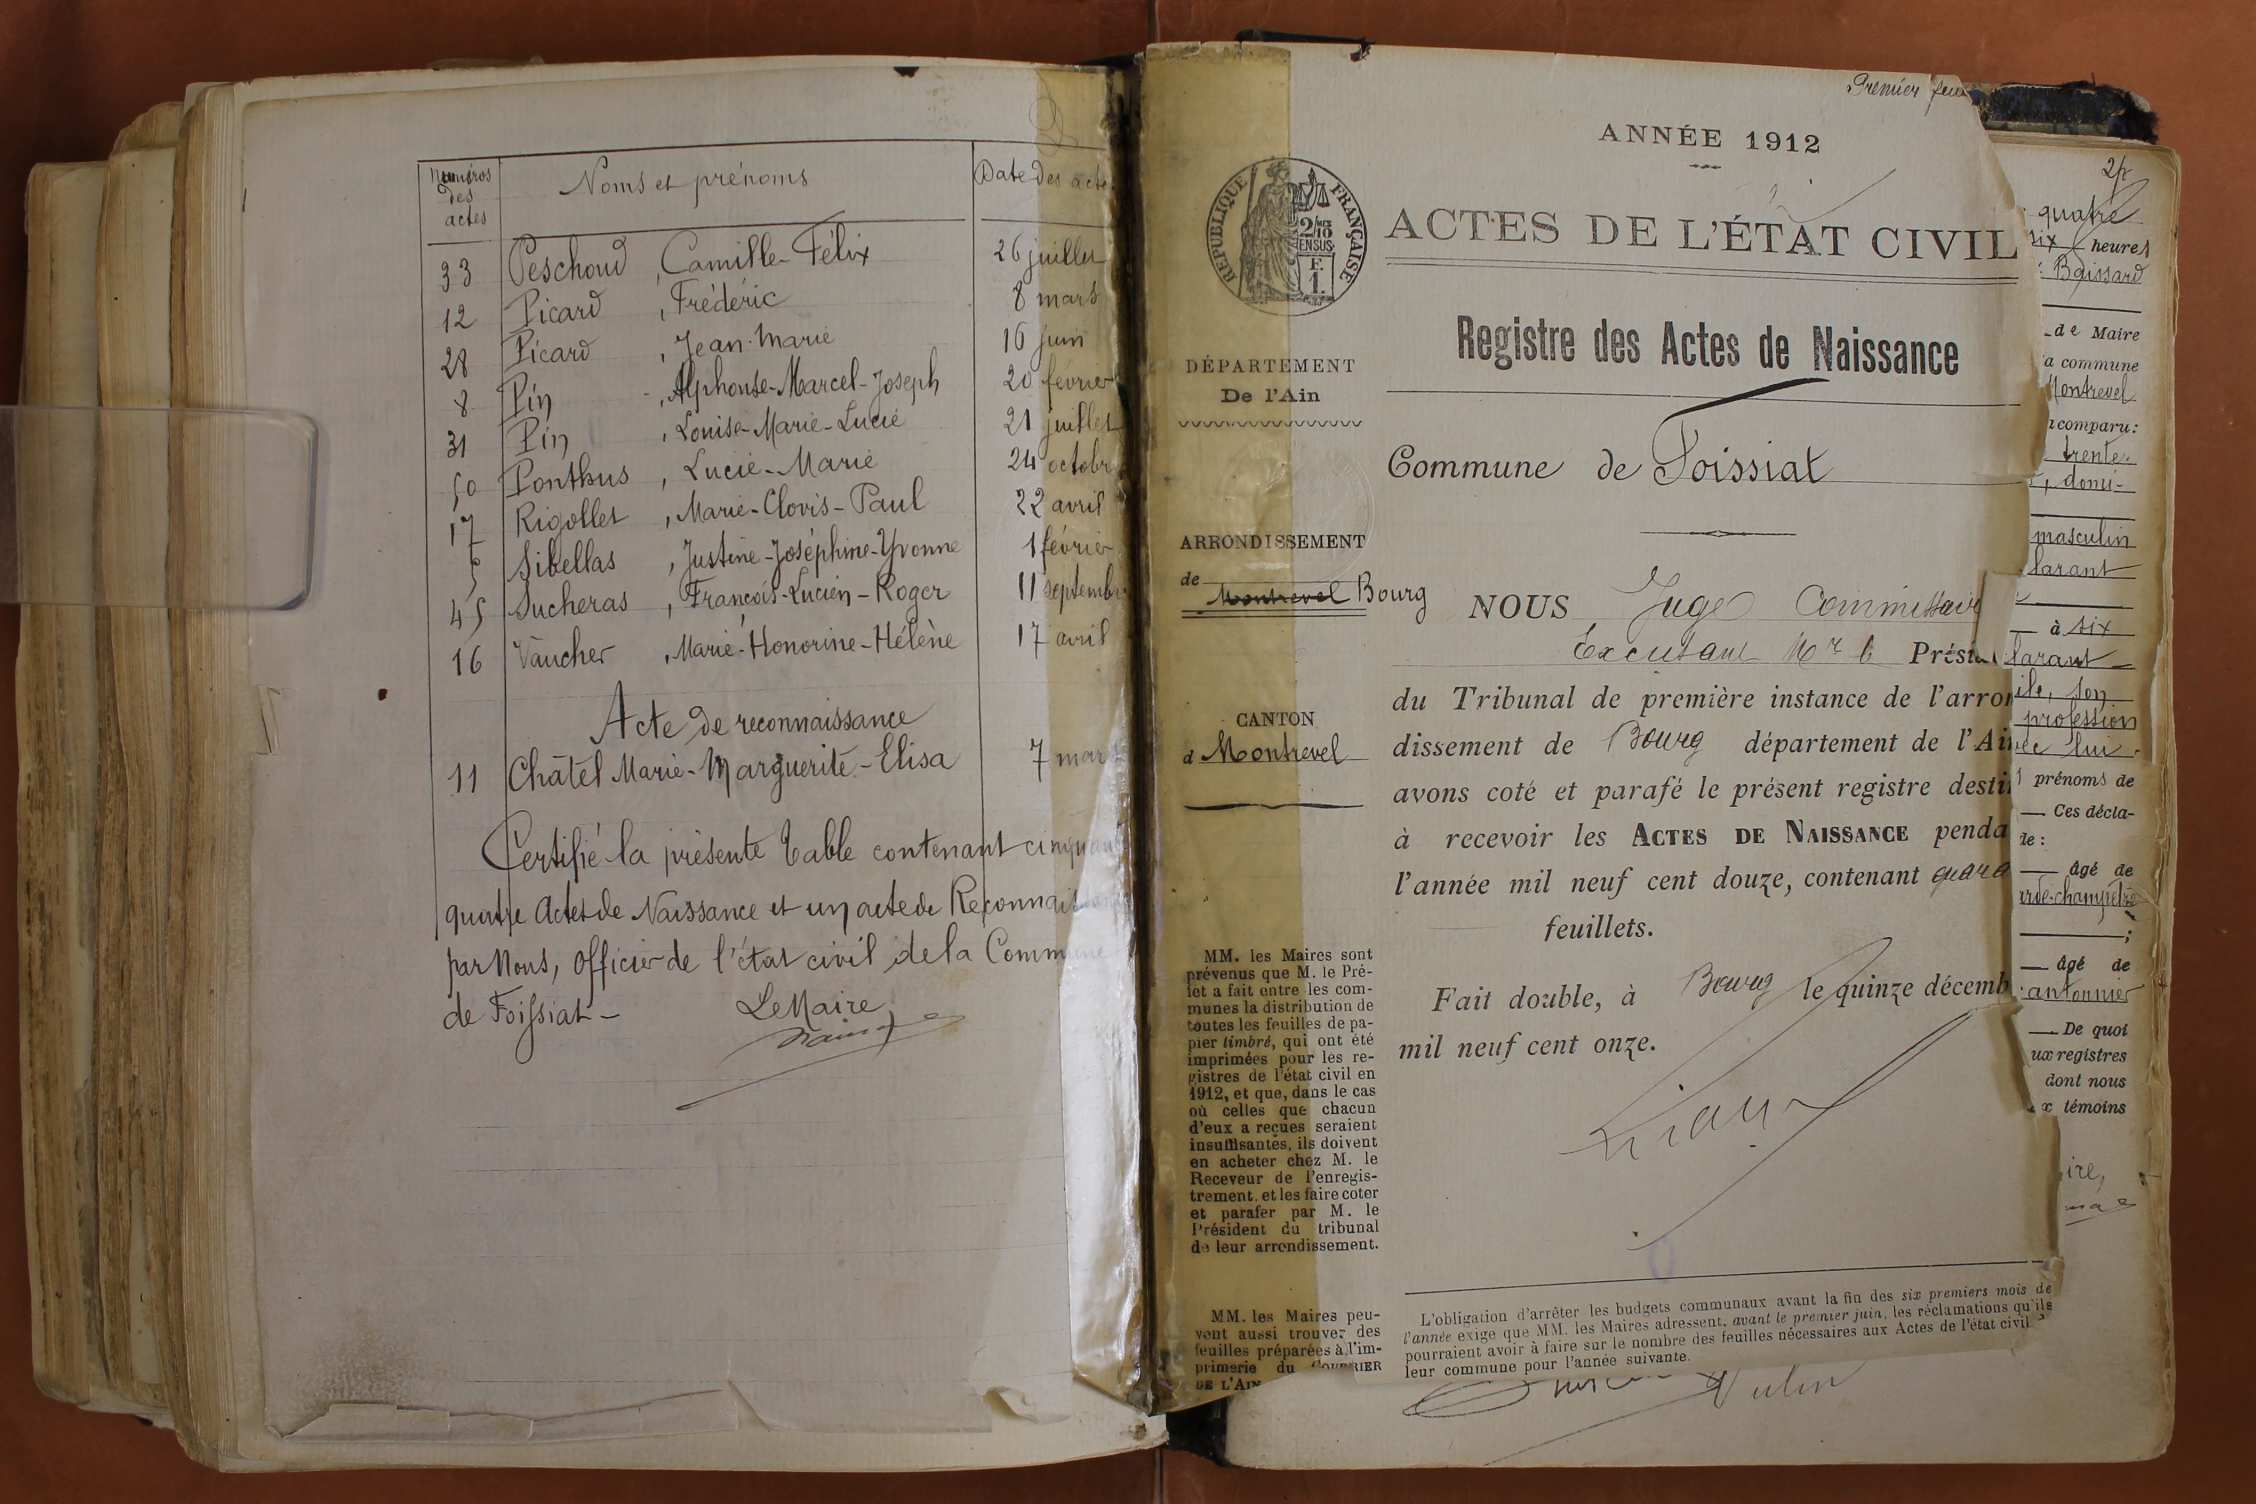 Numéros des actes
Noms et prénoms
Date des acte
33 Peschoud, Camille-Félix 26 juillet
12 Picard, Frédéric 8 mars
28 Picard, Jean-Marie 16 juin
8 Pin, Alphonse-Marcel-Joseph 20 février
31 Pin, Louise-Marie-Lucie 21 juillet
50 Ponthus, Lucie-Marie 24 octobr
17 Rigollet, Marie-Clovis-Paul 22 avril
5 Sibellas, Justine-Joséphine-Yvonne 1 février
45 Sucheras, François-Lucien-Roger 11 septembr
16 Vaucher, Marie-Honorine-Hélène 17 avril
Acte de reconnaissance
11 Châtel Marie-Marguerite-Elisa 7 mar
Certifié la présente Table contenant cinquan
quatre Actes de Naissance et un acte de Reconnaissan
par Nous, Officier de l'état civil de la Commune
de Foissiat -
Le Maire,
Premier feui
ANNÉE 1912
RÉPUBLIQUE FRANÇAISE
2/10
EN SUS
F.
1.
ACTES DE L'ÉTAT CIVIL
Registre des Actes de Naissance
DÉPARTEMENT
De l'Ain
Commune de Foissiat
ARRONDISSEMENT
de Montrevel Bourg
CANTON
d Montrevel
NOUS Juge Commissaire
Exécutant Mr le Présid
du Tribunal de première instance de l'arron
dissement de Bourg département de l'Ai
avons coté et parafé le présent registre desti
à recevoir les ACTES DE NAISSANCE penda
l'année mil neuf cent douze, contenant quara
feuillets.
Fait double, à Bourg le quinze décemb
mil neuf cent onze.
MM. les Maires sont
prévenus que M. le Pré-
fet a fait entre les com-
munes la distribution de
toutes les feuilles de pa-
pier timbré, qui ont été
imprimées pour les re-
gistres de l'état civil en
1912, et que, dans le cas
où celles que chacun
d'eux a reçues seraient
insuffisantes, ils doivent
en acheter chez M. le
Receveur de l'enregis-
trement, et les faire coter
et parafer par M. le
Président du tribunal
de leur arrondissement.
MM. les Maires peu-
vent aussi trouver des
feuilles préparées à l'im-
primerie du COURRIER
DE L'AIN
L'obligation d'arrêter les budgets communaux avant la fin des six premiers mois de
l'année exige que MM. les Maires adressent, avant le premier juin, les réclamations qu'ils
pourraient avoir à faire sur le nombre des feuilles nécessaires aux Actes de l'état civil
leur commune pour l'année suivante.
quatre
six heures
Boissard
de Maire
a commune
Montrevel
comparu:
trente
, domi-
masculin
larant
à six
larant
ile, son
profession
ec lui
prénoms de
Ces décla-
de :
âgé de
rde-champêtre
;
âgé de
cantonnier
De quoi
ux registres
dont nous
x témoins
ire,